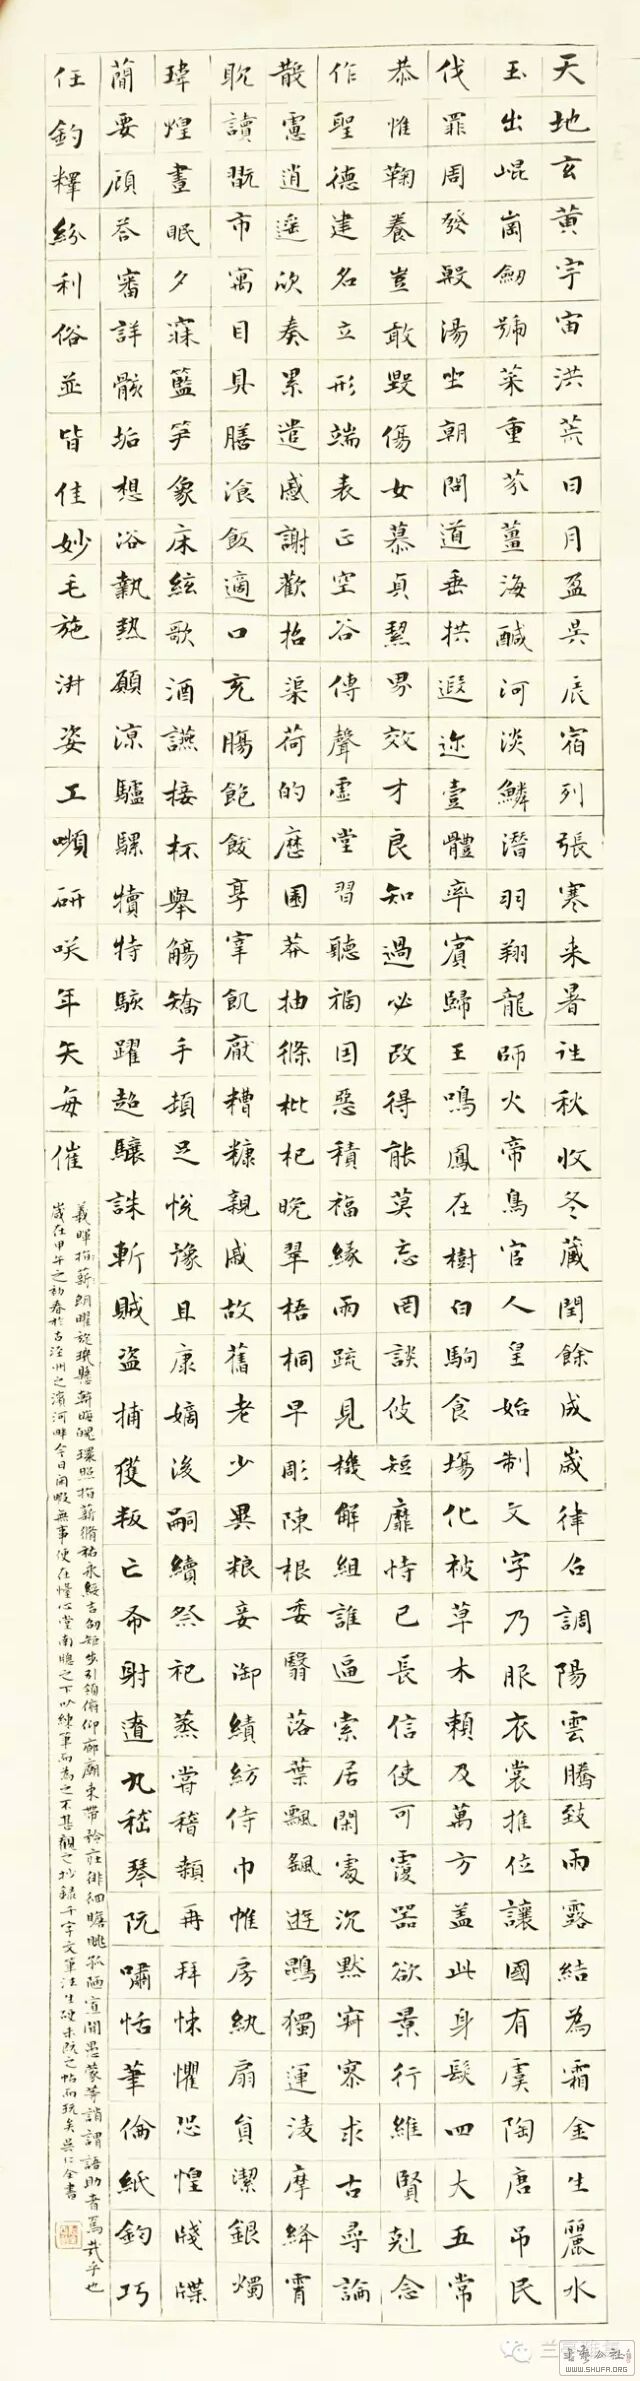 天地玄黃宇宙洪荒日月盈昃辰宿列張寒来暑往秋收冬藏閏餘成歲律吕調陽雲騰致雨露結為霜金生麗水
玉出崐崗劒號菜重芥薑海醎河淡鱗潛羽翔龍師火帝鳥官人皇始制文字乃服衣裳推位讓國有虞陶唐吊民
伐罪周發殷湯坐朝問道垂拱遐迩壹體率賓歸王鳴鳳在樹白駒食場化被草木賴及萬方蓋此身髮四大五常
恭惟鞠養豈敢毀傷女慕貞絜男效才良知過必改得能莫忘罔談彼短靡恃己長信使可覆器欲景行維賢剋念
作聖德建名立形端表正空谷傳聲虛堂習聽禍因惡積福緣雨疏見機解組誰逼索居閑處沉默寂寥求古尋論
散慮逍遥欣奏累遣慼謝歡招渠荷的歷園莽抽條枇杷晚翠梧桐早彫陳根委翳落葉飄颻遊鵾獨運淩摩絳霄
耽讀翫市寓目具膳飡飯適口充腸飽飫享宰飢厭糟糠親戚故舊老少異粮妾御績紡侍巾帷房紈扇員潔銀燭
瑋煌晝眠夕寐籃笋象床絃歌酒讌接杯舉觴矯手頓足悅豫且康嫡後嗣續祭祀蒸嘗稽顙再拜悚懼恐惶牋牒
簡要顧答審詳骸垢想浴執熱願涼驢騾犢特駭躍超驤誅斬賊盜捕獲叛亡布射遼丸嵇琴阮嘯恬筆倫紙鈞巧
任釣釋紛利俗並皆佳妙毛施淑姿工嚬研咲年矢每催
義暉指薪朗曜旋璣懸斡晦魄環照指薪脩祜永綏吉劭矩步引領俯仰廊廟束帶矜莊徘徊瞻眺孤陋寡聞愚蒙等誚謂語助者焉哉乎也
歲在甲午之初春於古州之濱河畔今日閑暇無事便在心堂南牕之下以練筆而為之不甚觀之抄錄千字文筆法生硬未之帖而玩矣吳仁全書
書藝公社
WWW.SHUFR.ORG